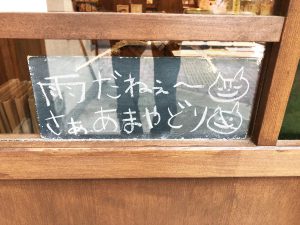 雨だねぇ〜
さぁ、あまやどり